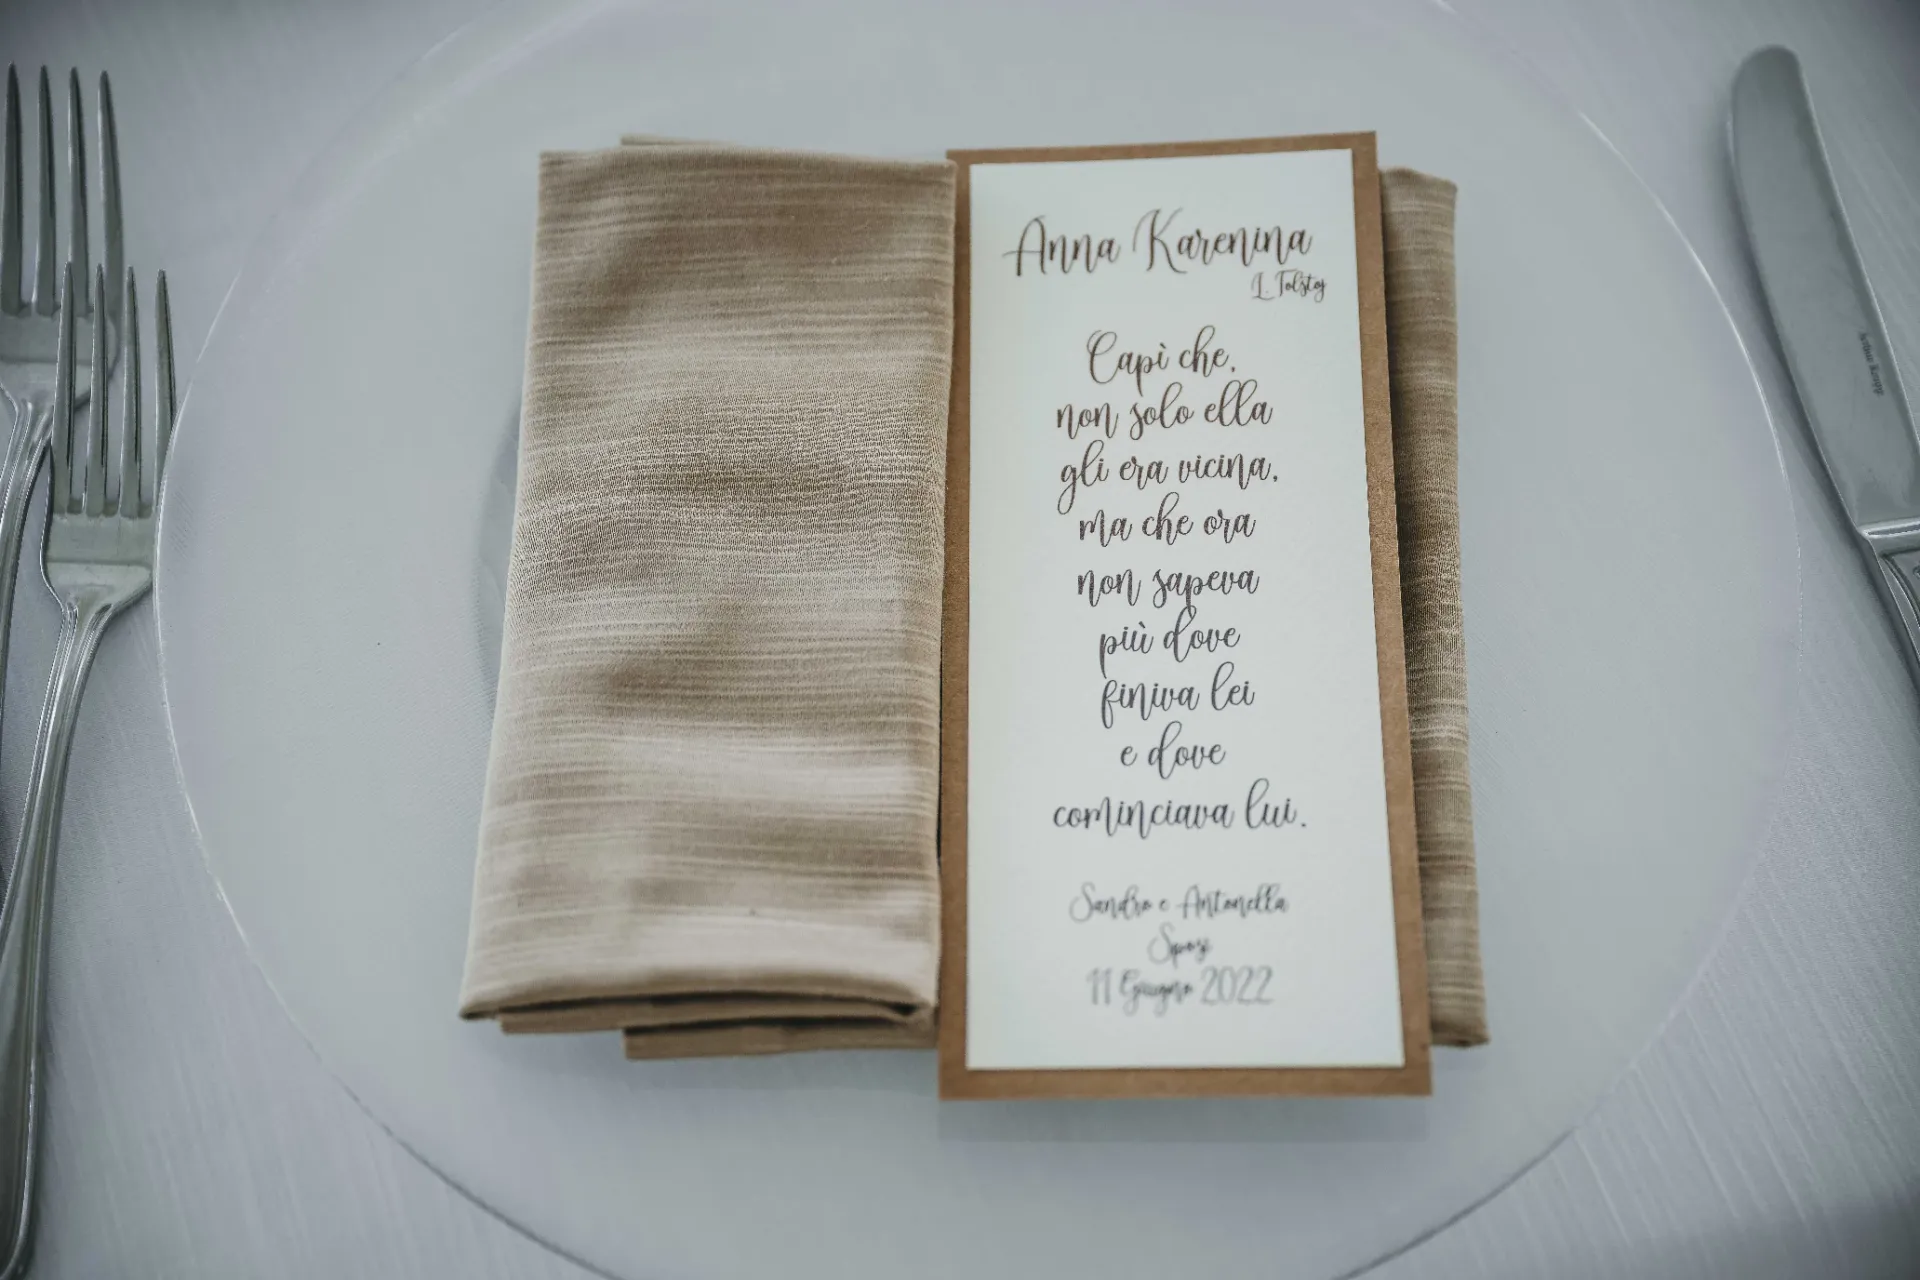 Anna Karenina
L. Tolstoj
Capì che,
non solo ella
gli era vicina,
ma che ora
non sapeva
più dove
finiva lei
e dove
cominciava lui.
Sandro e Antonella
Sposi
11 Giugno 2022